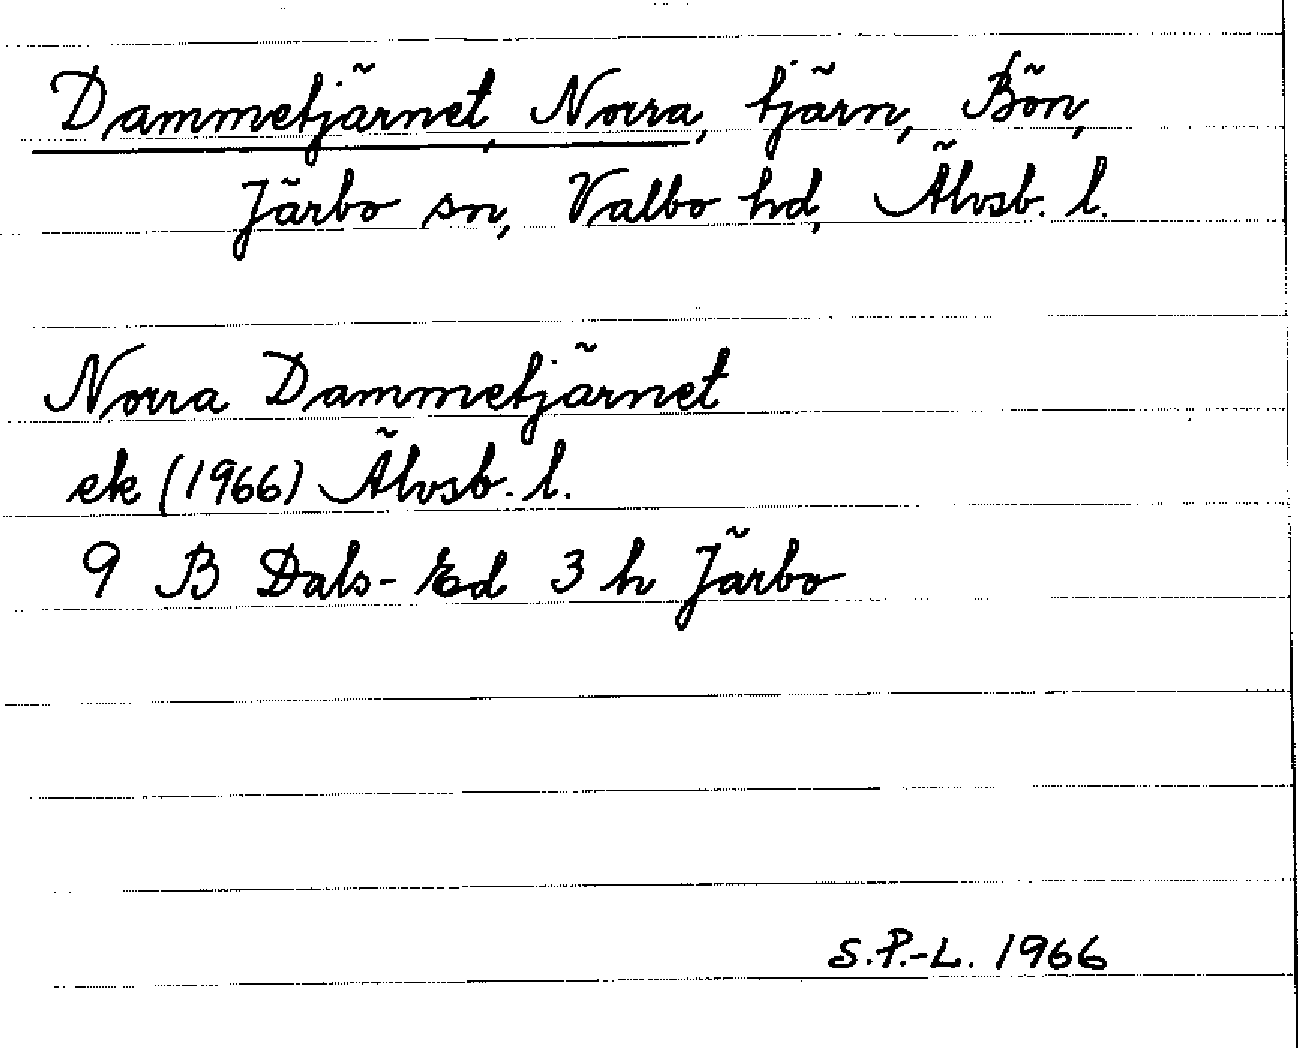 Dammetjärnet, Norra, tjärn, Bön,
Järbo sn, Valbo hd, Älvsb. l.
Norra Dammetjärnet
ek (1966) Älvsb. l.
9 B Dals-Ed 3 h Järbo
S.P.-L. 1966